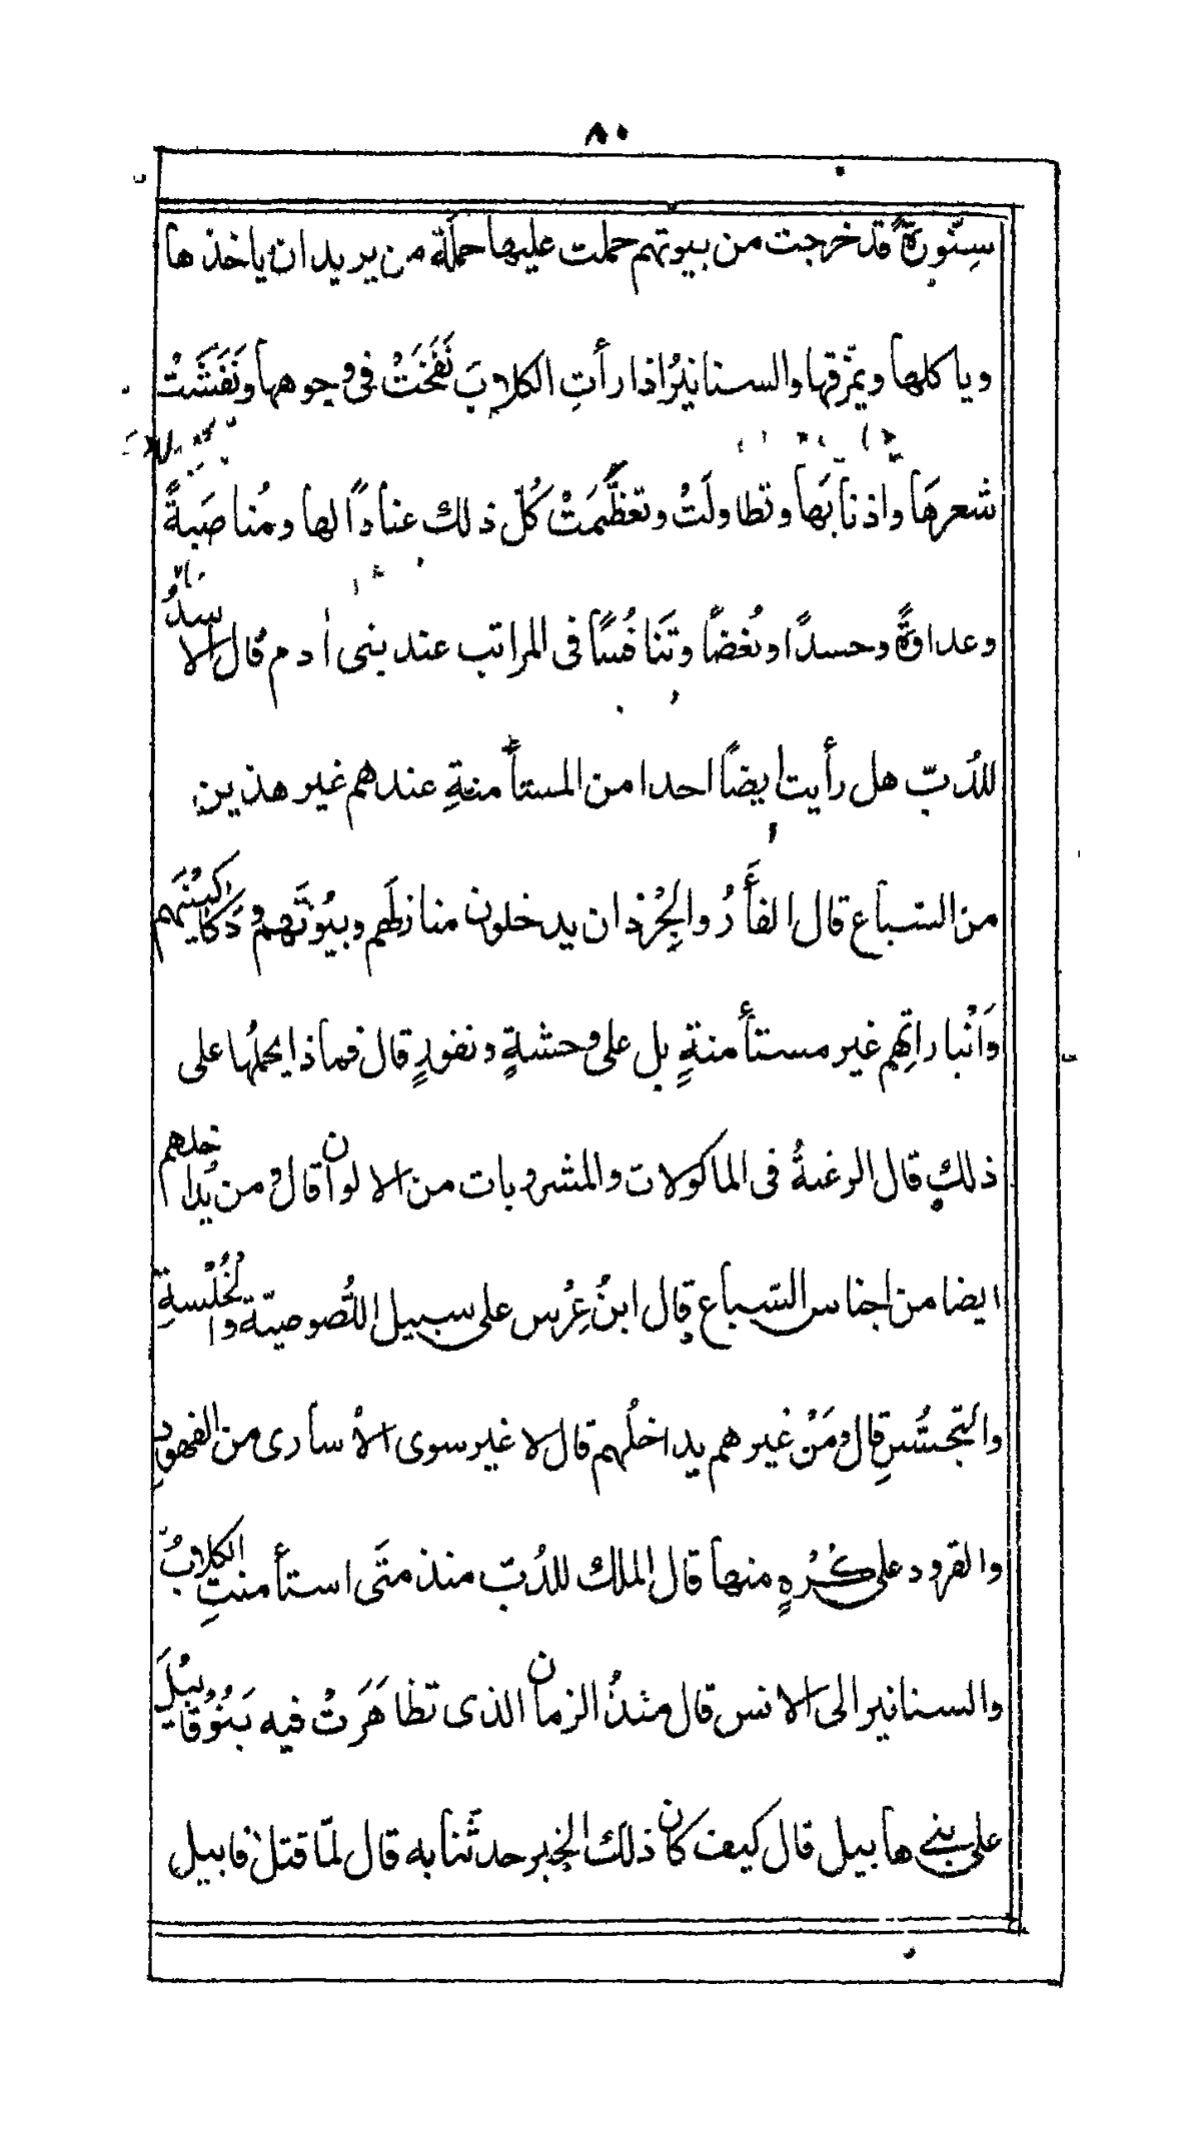 ٨٠
سِنّورةً قد خرجت من بيوتهم حملت عليها حملة من يريد ان ياخذها
وياكلها ويمزّقها والسنانيرُ اذا رأتِ الكلابَ نَفَخَتْ فى وجوهها ونَفَشَتْ
شعرهَا واذنابَها وتطاولَتْ وتعظَّمَتْ كُلّ ذلك عنادًا لها ومُناصَبةً
وعداوةً وحسدًا وبُغضاً وتَنافُسًا فى المراتب عند بنى اٰدم قال الاسدُ
للدُبّ هل رأيت ايضاً احدا من المستأمنةِ عندهم غير هذين
من السّباع قال الفأَرُ والجِرْذان يدخلون منازلَهم وبيُوتَهم ودَكاكيْنَهم
وَانْباراتِهم غير مستأمنةٍ بل على وحشةٍ ونفورٍ قال فماذا يحملُها على
ذلك قال الرغبةُ فى الماكولات والمشروبات من الالوان قال ومن يُداخلهم
ايضا من اجناس السّباع قال ابنُ عِرْس على سبيل اللُّصوصيّة والخُلْسةِ
والتجسُّسِ قال ومَنْ غيرهم يداخلُهم قال لا غير سوى الأسارى من الفهودِ
والقرود على كُرْهٍ منها قال الملك للدُبّ منذ متَى استأمنتِ الكلابُ
والسنانير الى الانس قال منذُ الزمان الذى تظاهَرَتْ فيه بَنُوْ قابِيْلَ
على بنى هابيل قال كيف كان ذلك الخبر حدثّنا به قال لمّا قتل قابيل